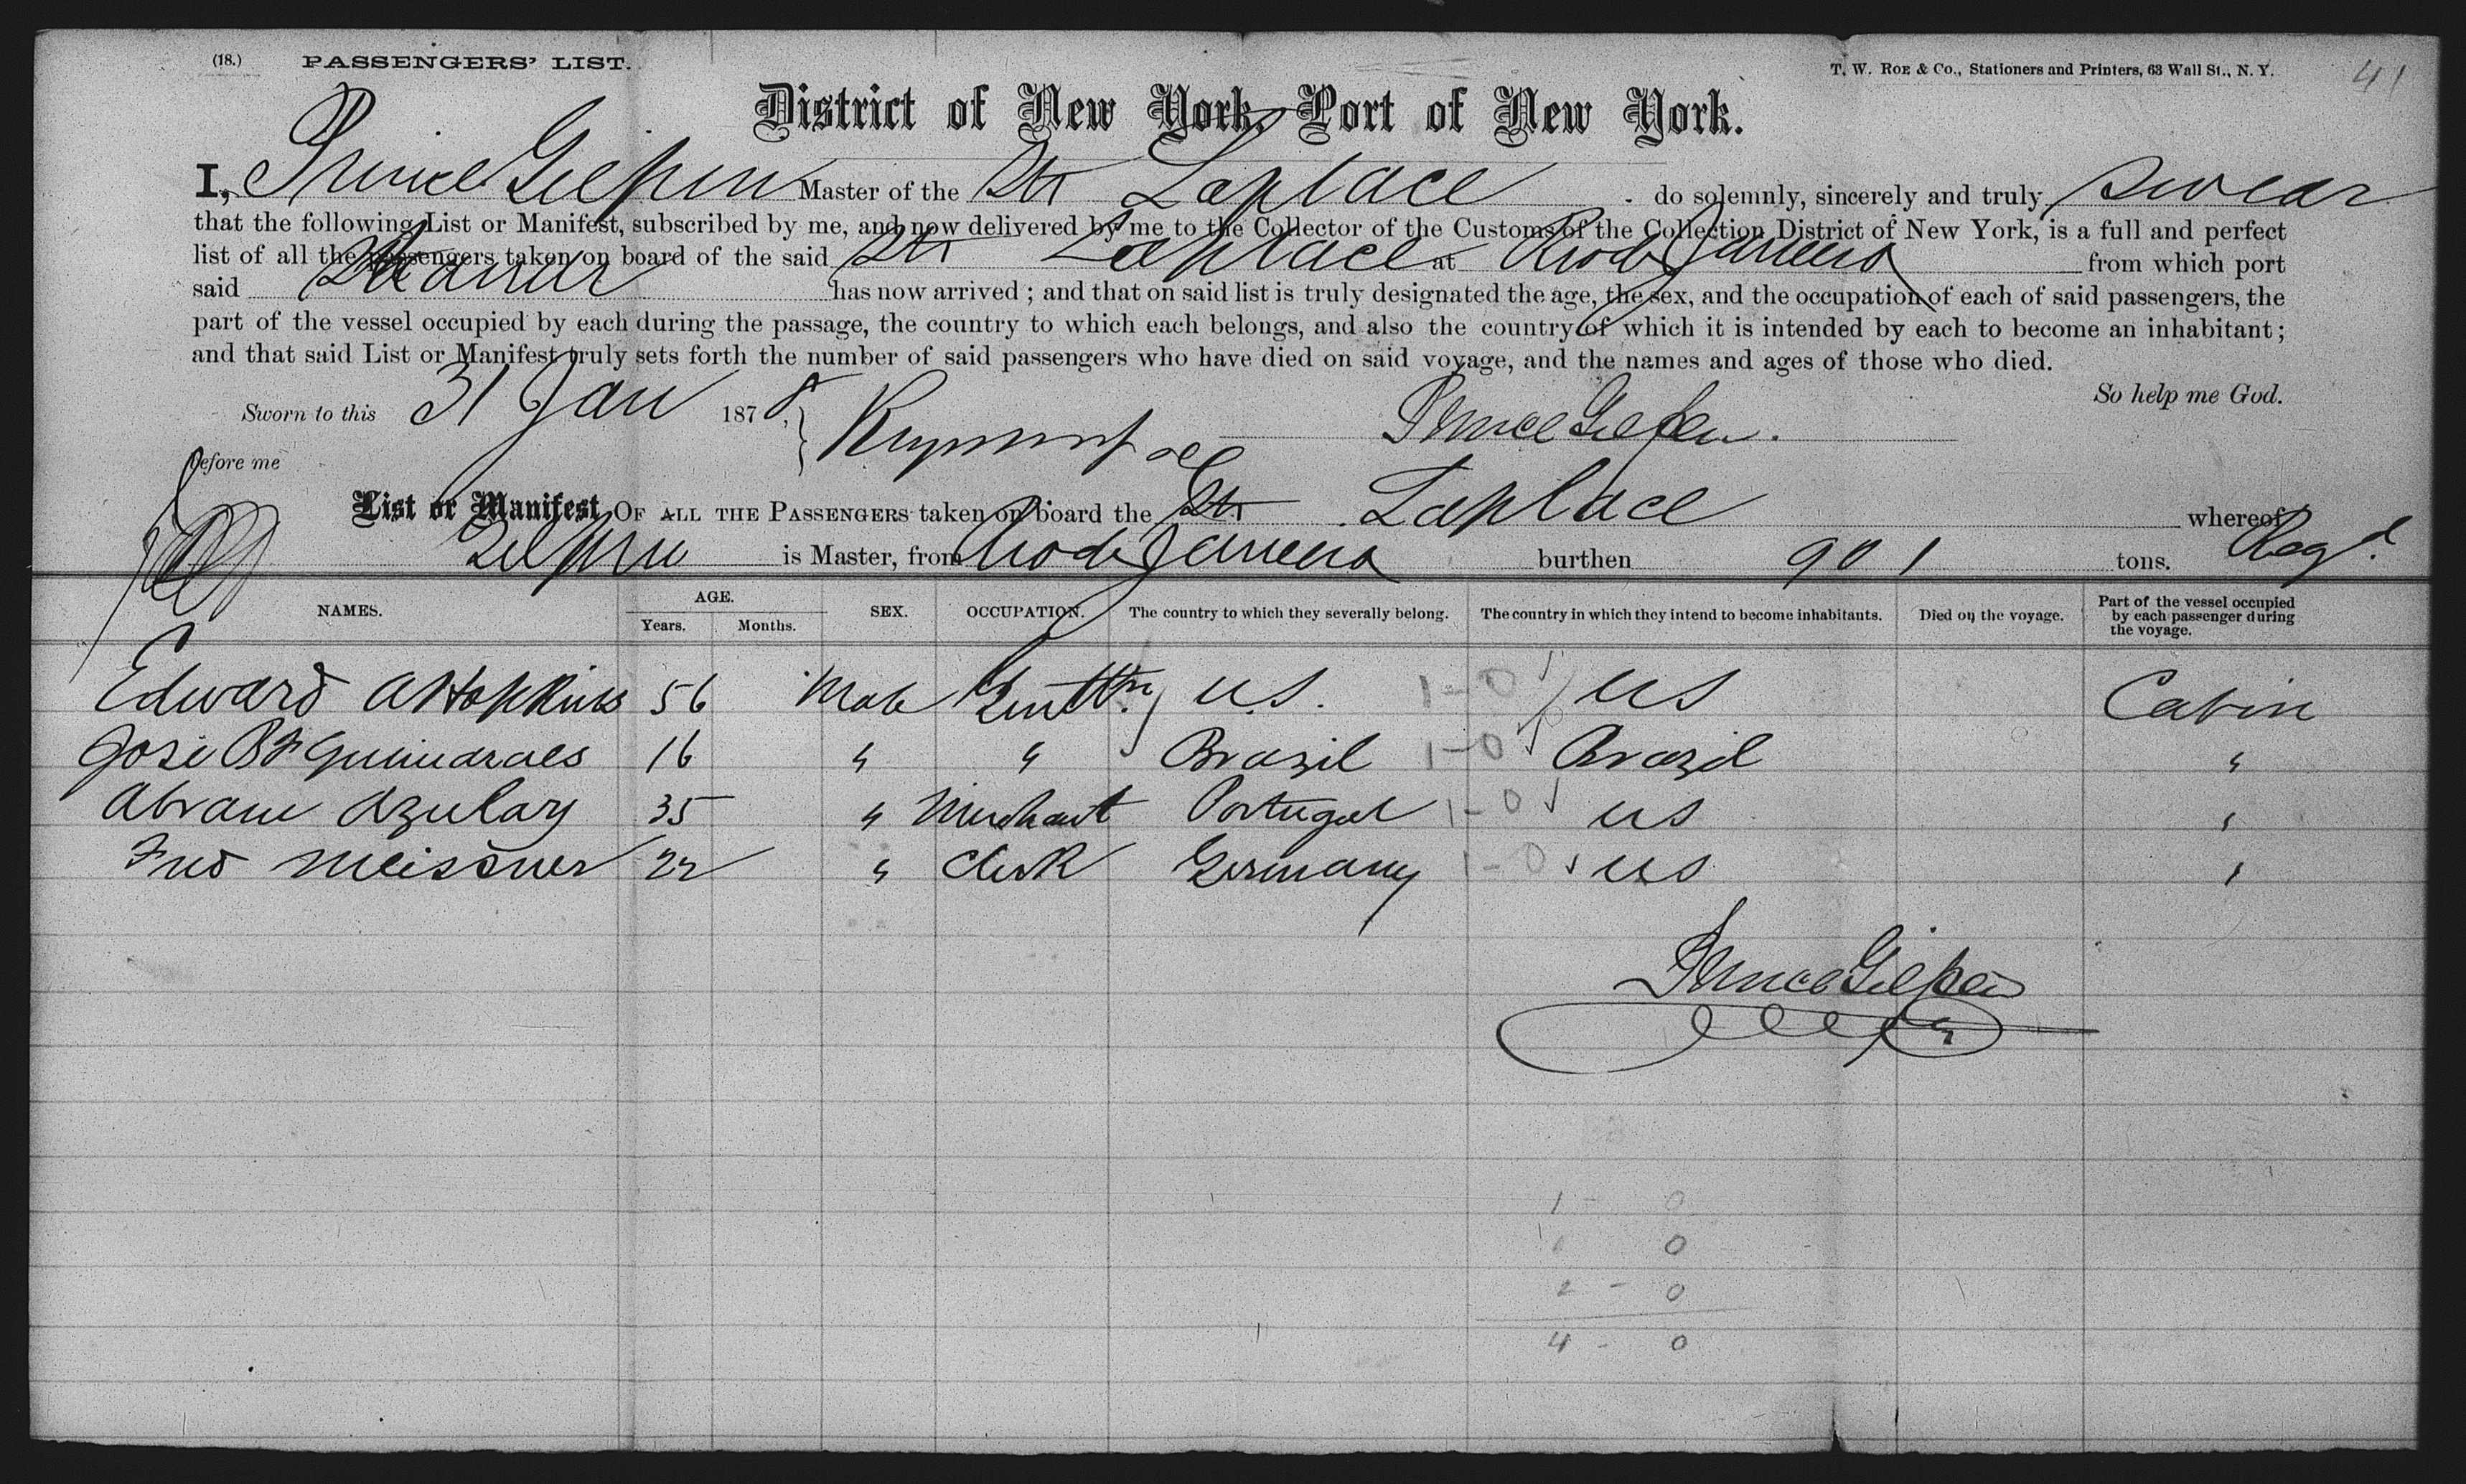 (18.) PASSENGERS' LIST. T. W. ROE & Co., Stationers and Printers, 63 Wall St., N. Y. 41
District of New York, Port of New York.
I, Prince Gilpin Master of the Str Laplace do solemnly, sincerely and truly swear
that the following List or Manifest, subscribed by me, and now delivered by me to the Collector of the Customs of the Collection District of New York, is a full and perfect
list of all the passengers taken on board of the said Str Laplace at Rio de Janeiro from which port
said Steamer has now arrived; and that on said list is truly designated the age, the sex, and the occupation of each of said passengers, the
part of the vessel occupied by each during the passage, the country to which each belongs, and also the country of which it is intended by each to become an inhabitant;
and that said List or Manifest truly sets forth the number of said passengers who have died on said voyage, and the names and ages of those who died.
So help me God.
Sworn to this 31 Jan 1878, Prince Gilpin.
Before me
List or Manifest OF ALL THE PASSENGERS taken on board the Str Laplace whereof
Gilpin is Master, from Rio de Janeiro burthen 901 tons. Regd
NAMES. AGE. Years. Months. SEX. OCCUPATION. The country to which they severally belong. The country in which they intend to become inhabitants. Died on the voyage. Part of the vessel occupied by each passenger during the voyage.
Edward A Hopkins 56 Male Gentln U.S. 1-0 US Cabin
Jose B F Guimaraes 16 " " Brazil 1-0 Brazil "
Abram Azulay 35 " Merchant Portugal 1-0 US "
Fred Meissner 22 " Clerk Germany 1-0 US "
Prince Gilpin
1 - 0
1 0
2 - 0
4 - 0